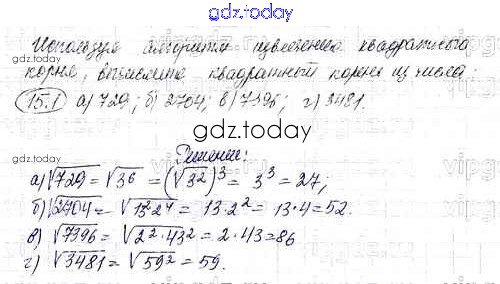 gdz.today
Используя алгоритм извлечения квадратного
корня, вычислите квадратный корень из числа:
15.1 а) 729; б) 2704; в) 7396; г) 3481.
gdz.today
Решение:
а) √729 = √3⁶ = (√3²)³ = 3³ = 27;
б) √2704 = √13²2⁴ = 13·2² = 13·4 = 52.
в) √7396 = √2²·43² = 2·43 = 86
г) √3481 = √59² = 59.
gdz.today